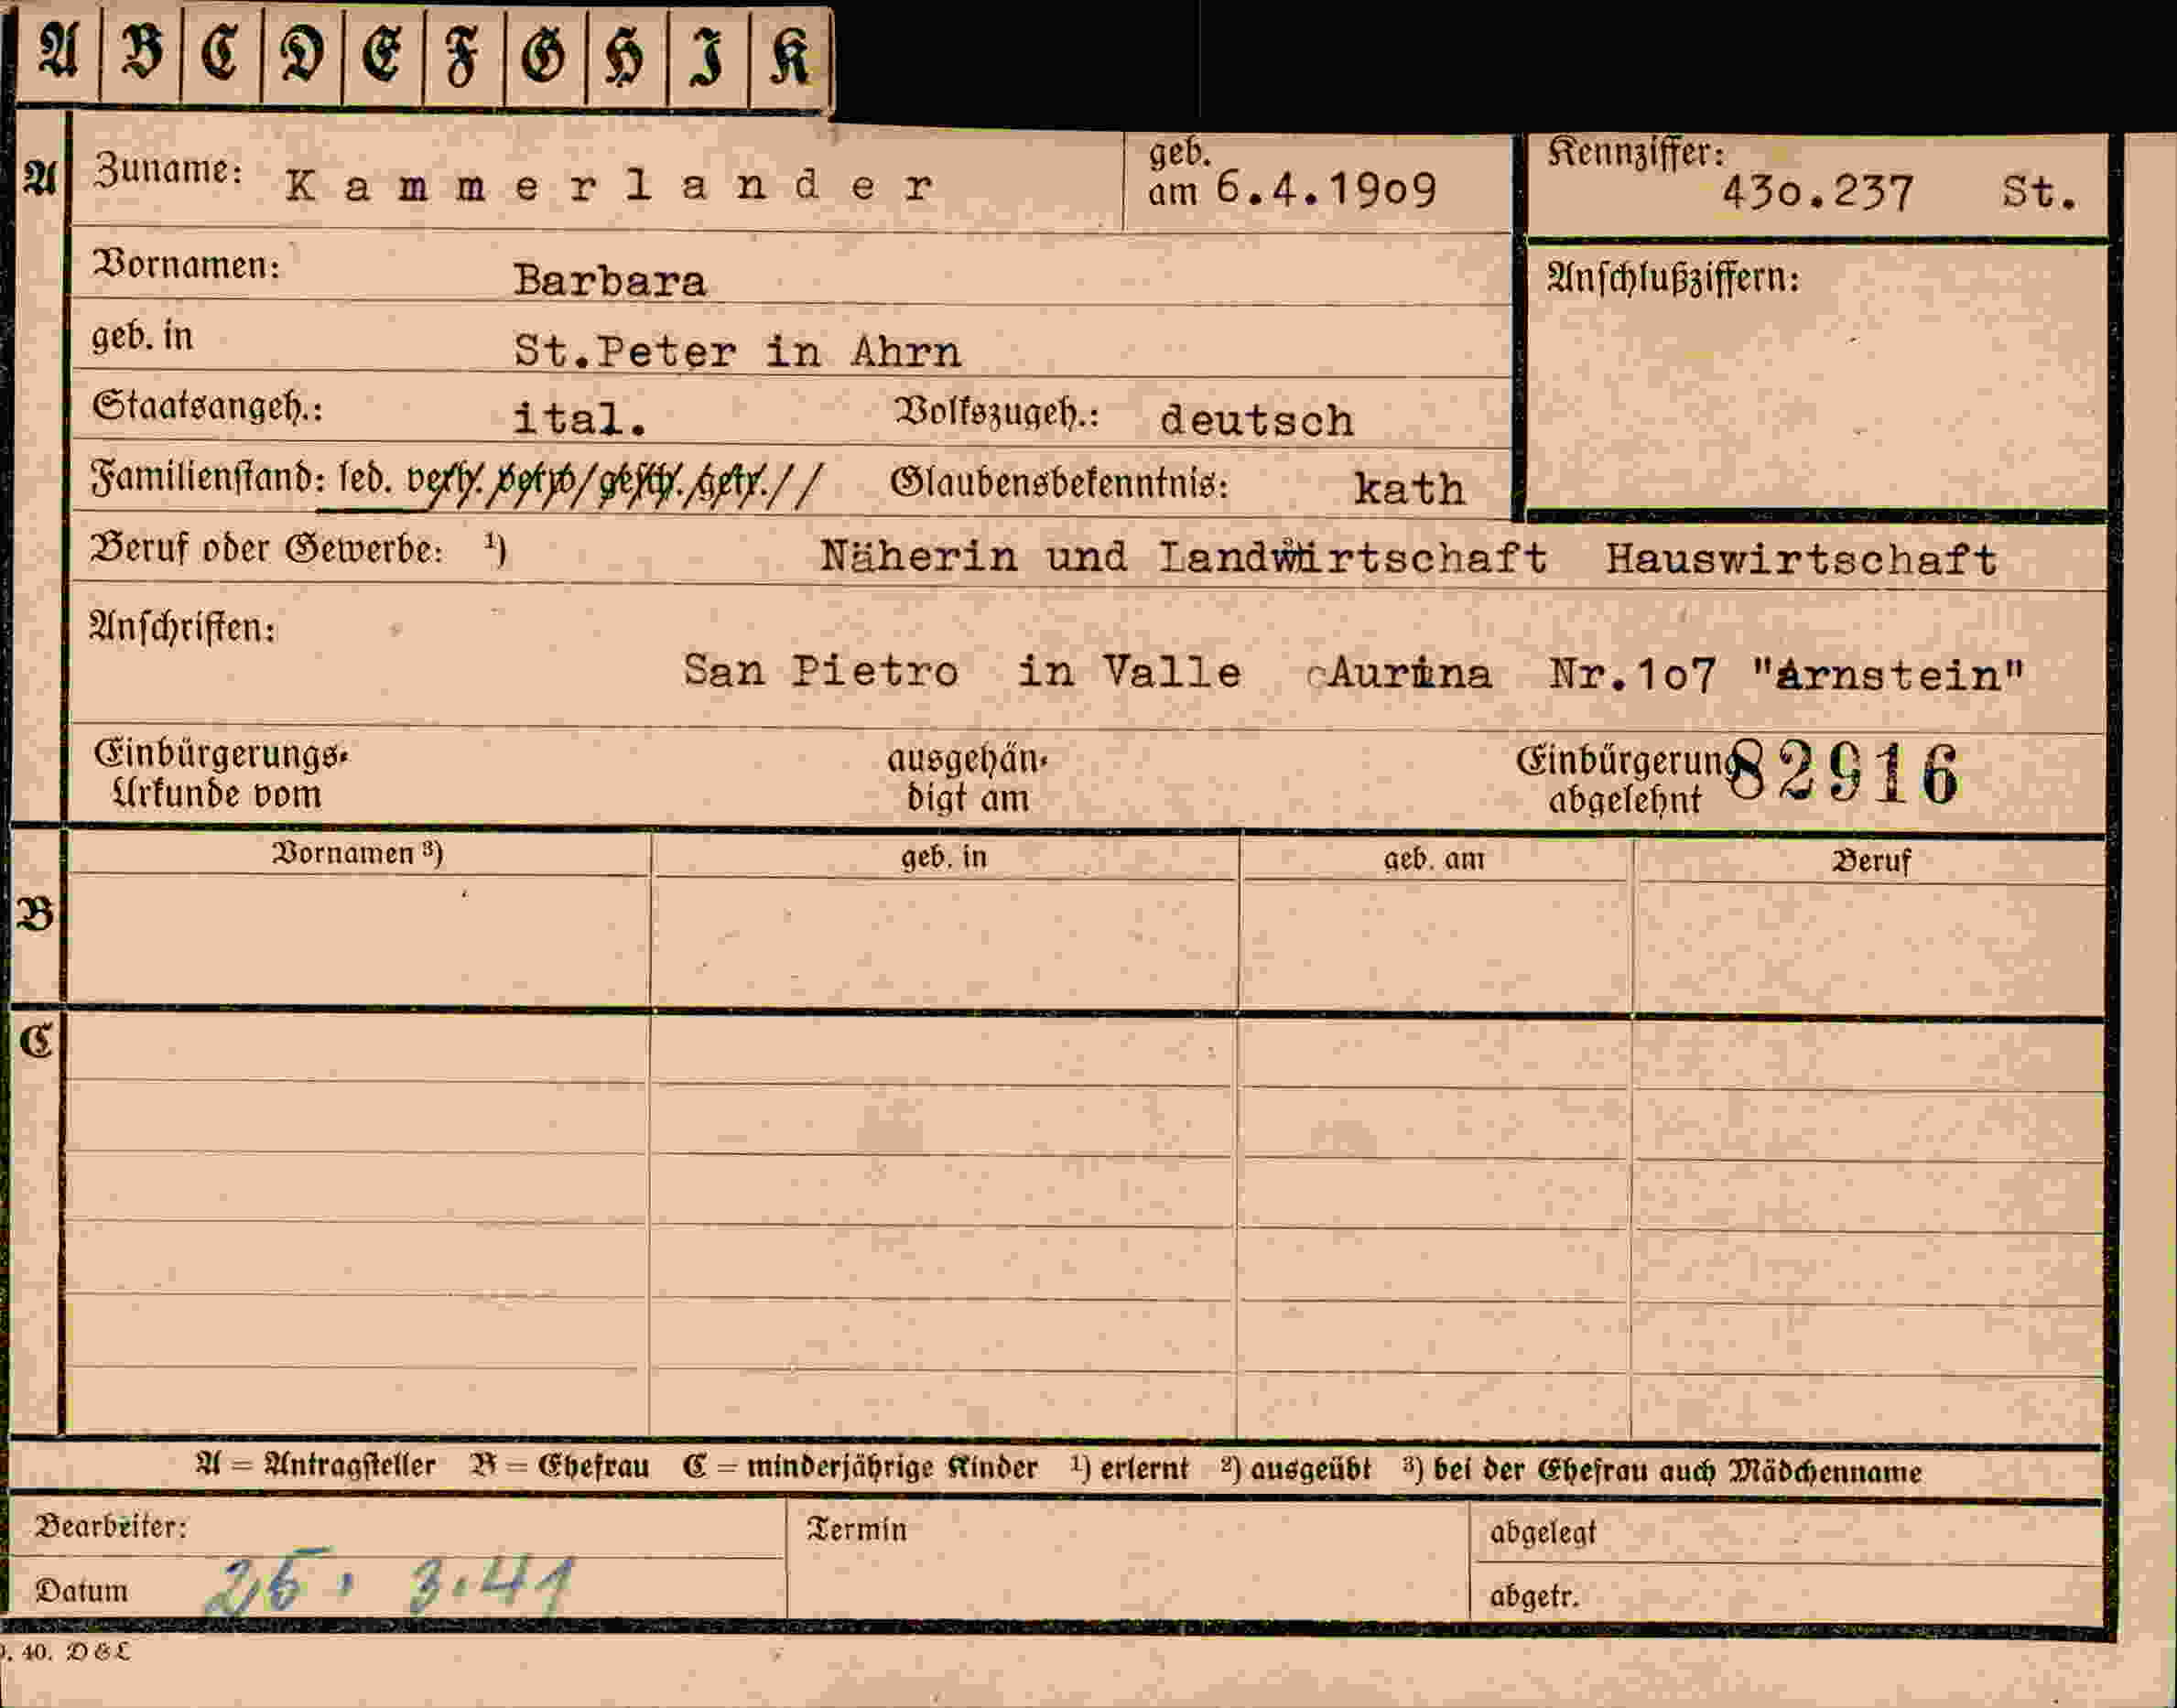 A B C D E F G H I K
A Zuname: Kammerlander geb. am 6.4.1909 Kennziffer: 430.237 St.
Vornamen: Barbara Anschlußziffern:
geb. in St.Peter in Ahrn
Staatsangeh.: ital. Volkszugeh.: deutsch
Familienstand: led. verh. verw. gesch. getr. Glaubensbekenntnis: kath
Beruf oder Gewerbe: ¹) Näherin und Landwirtschaft Hauswirtschaft
Anschriften:
San Pietro in Valle Aurina Nr.107 "Arnstein"
Einbürgerungs- ausgehän- Einbürgerung 82916
Urkunde vom digt am abgelehnt
Vornamen ³) geb. in geb. am Beruf
B
C
A = Antragsteller B = Ehefrau C = minderjährige Kinder ¹) erlernt ²) ausgeübt ³) bei der Ehefrau auch Mädchenname
Bearbeiter: Termin abgelegt
Datum 25. 3.41 abgetr.
. 40. D &L